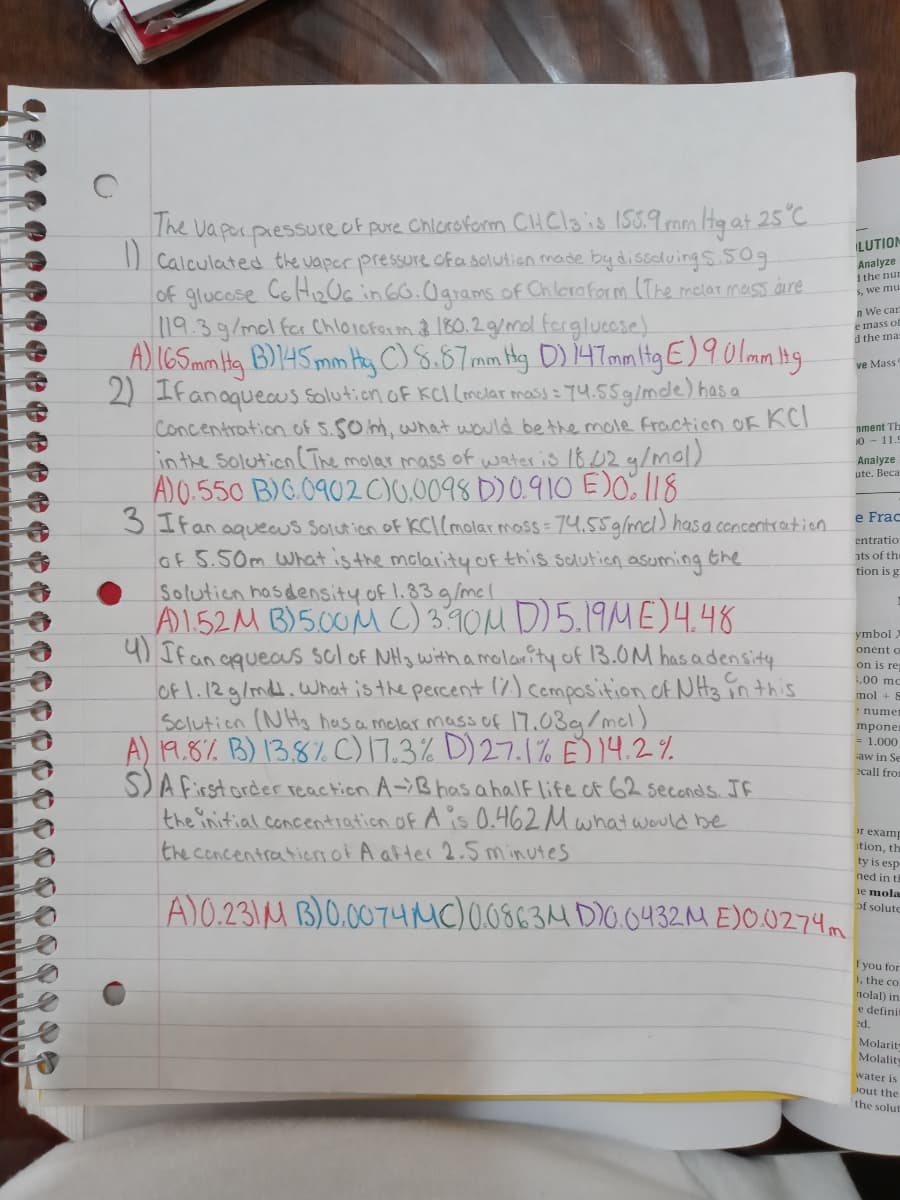 The Vapor pressure of pure Chloroform CHCl3 is 155.9 mm Hg at 25°C
1) Calculated the vapor pressure of a solution made by dissolving 5.50g
of glucose C6H12O6 in 60.0grams of Chloroform (The molar mass are
119.3 g/mol for Chloroform & 180.2g/mol for glucose)
A)165mmHg B)145mmHg C)8.87mmHg D)147mmHg E)9.01mmHg
2) If an aqueous Solution of KCl (molar mass = 74.55g/mole) has a
Concentration of 5.50 m, what would be the mole fraction of KCl
in the solution (The molar mass of water is 18.02 g/mol)
A)0.550 B)0.0902 C)0.0098 D)0.910 E)0.118
3 If an aqueous Solution of KCl (molar mass = 74.55g/mol) has a concentration
of 5.50m What is the molarity of this solution asuming the
Solution has density of 1.33 g/mol
A)1.52M B)5.00M C)3.90M D)5.19M E)4.48
4) If an aqueous sol of NH3 with a molarity of 13.0M has a density
of 1.12g/ml. What is the percent (%) composition of NH3 in this
Solution (NH3 has a molar mass of 17.03g/mol)
A) 19.8% B) 13.8% C)17.3% D)27.1% E)14.2%
5) A first order reaction A->B has a half life of 62 seconds. If
the initial concentration of A is 0.462M what would be
the concentration of A after 2.5 minutes
A)0.231M B)0.0074M C)0.0863M D)0.0432M E)0.0274m
LUTION
Analyze
the nu
s, we mu
We can
e mass of
d the ma
ve Mass
nment Th
0 - 11.5
Analyze
ute. Beca
e Frac
entratio
nts of the
tion is g
ymbol X
onent o
on is re
.00 mo
mol + 8
numer
mponen
= 1.000
aw in Se
ecall fro
or examp
tion, th
ty is esp
ned in th
e mola
of solute
f you for
, the co
nolal) in
e defini
ed.
Molarity
Molality
water is
out the
the solut